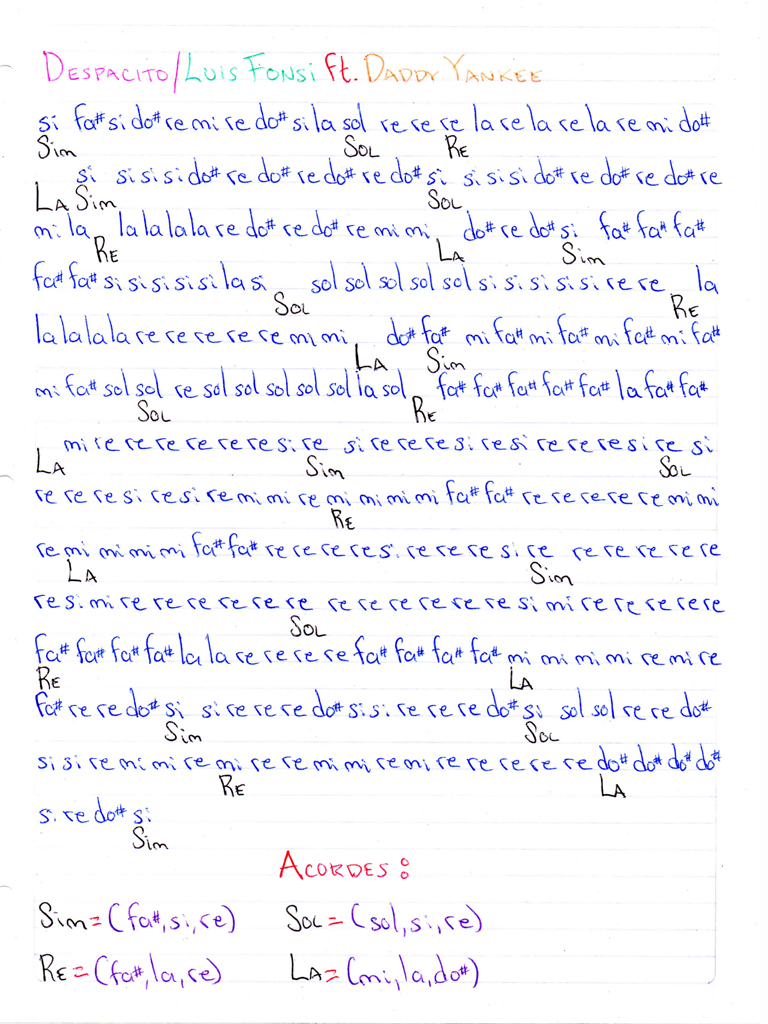 DESPACITO/LUIS FONSI ft. DADDY YANKEE
si fa# si do# re mi re do# si la sol re re re la re la re la re mi do#
Sim SOL RE
si si si si do# re do# re do# re do# si si si si do# re do# re do# re
LA Sim SOL
mi la la la la la re do# re do# re mi mi do# re do# si fa# fa# fa#
RE LA Sim
fa# fa# si si si si si la si sol sol sol sol sol si si si si si re re la
SOL RE
la la la la re re re re re mi mi do# fa# mi fa# mi fa# mi fa# mi fa#
LA Sim
mi fa# sol sol re sol sol sol sol sol la sol fa# fa# fa# fa# fa# la fa# fa#
SOL RE
mi re re re re re re re si re si re re re si re si re re re re si re si
LA Sim SOL
re re re re si re si re mi mi re mi mi mi mi mi fa# fa# re re re re re mi mi
RE
re mi mi mi mi mi fa# fa# re re re re re si re re re re si re re re re re re
LA Sim
re si mi re re re re re re re re re re re re re re si mi re re re re re
SOL
fa# fa# fa# fa# la la re re re re fa# fa# fa# fa# mi mi mi mi re mi re
RE LA
fa# re re do# si si re re re do# si si re re re do# si sol sol re re do#
Sim SOL
si si re mi mi re mi re re mi mi re mi re re re re re re do# do# do# do#
RE LA
si re do# si
Sim
ACORDES:
Sim=(fa#,si,re) SOL=(sol,si,re)
RE=(fa#,la,re) LA=(mi,la,do#)